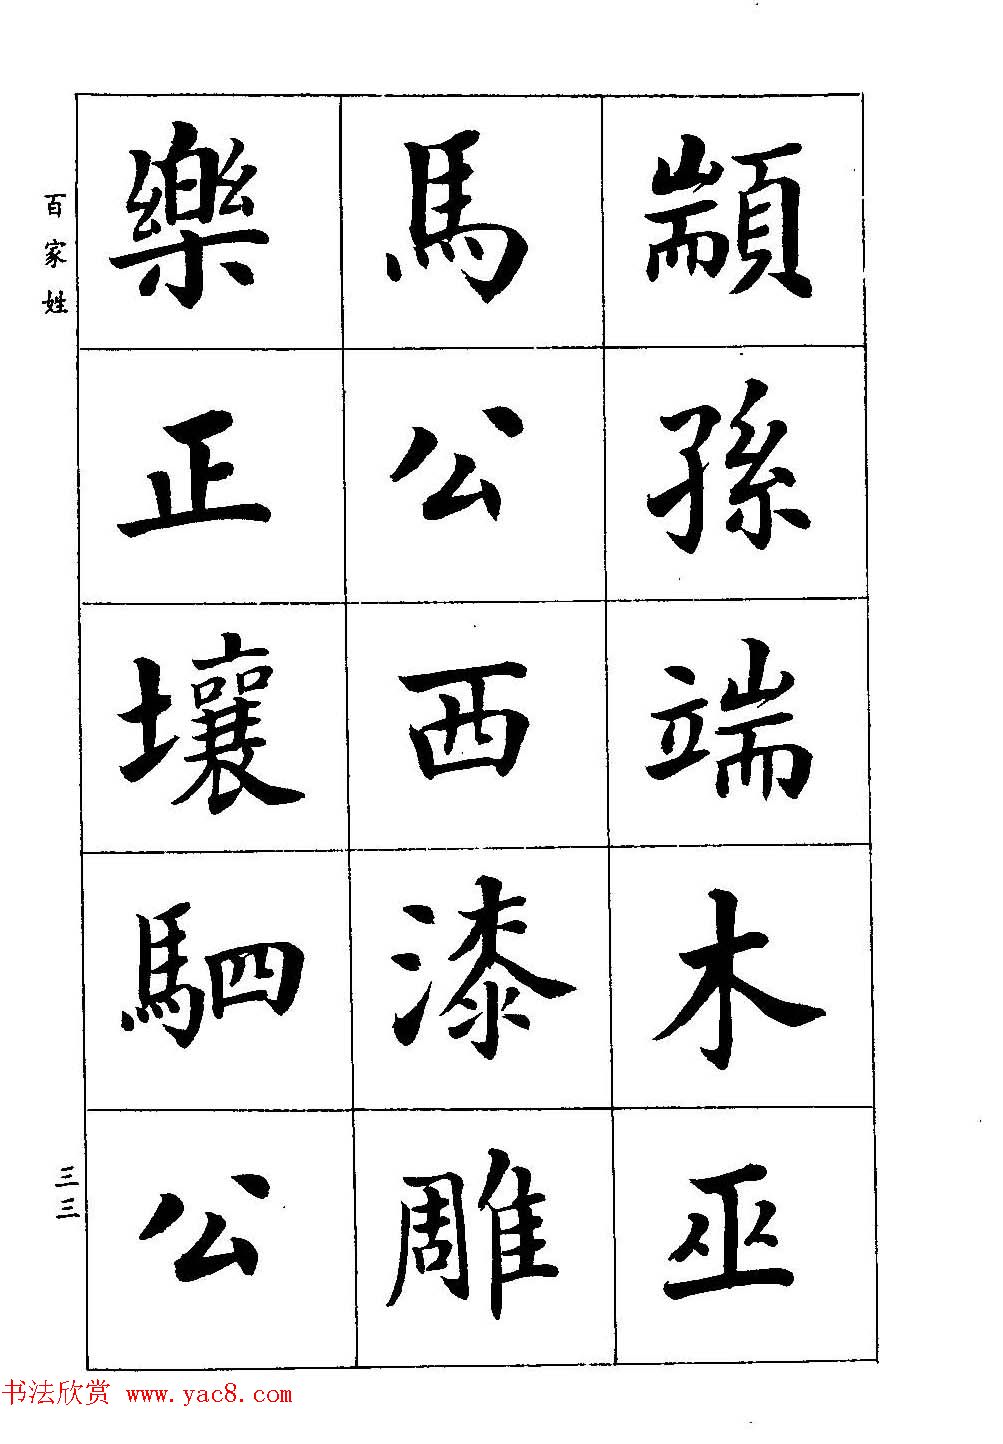 顓孫端木巫
馬公西漆雕
樂正壤駟公
百家姓
三三
书法欣赏 www.yac8.com